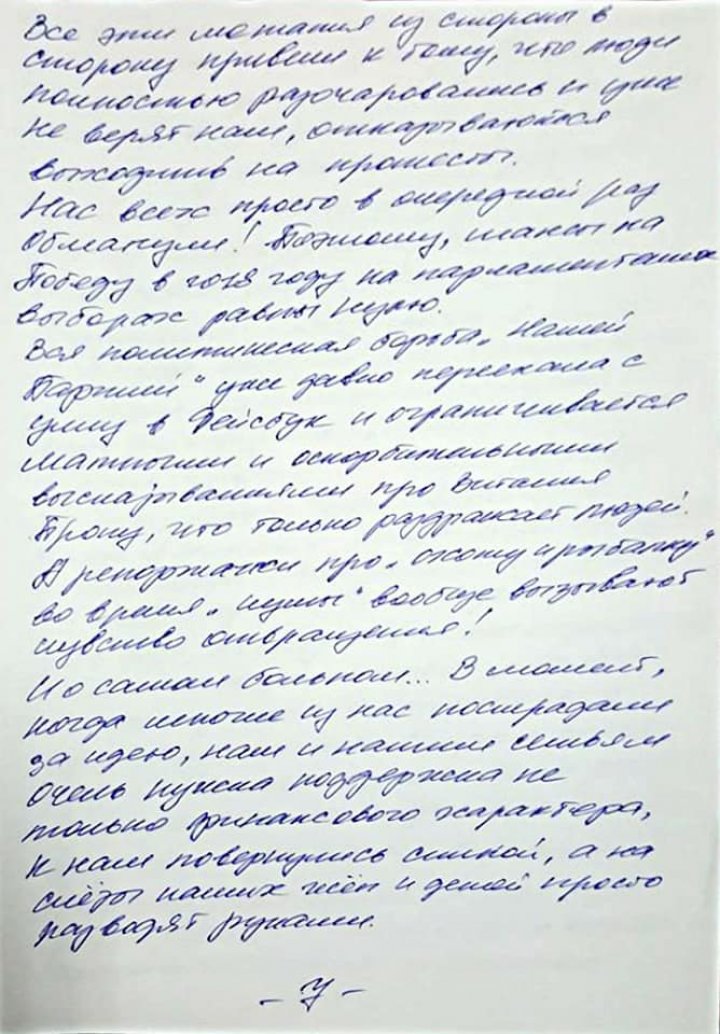 Все эти метания из стороны в
сторону привели к тому, что люди
полностью разочаровались и уже
не верят нам, отказываются
выходить на протесты.
Нас всех просто в очередной раз
обманули! Поэтому, шансы на
Победу в 2018 году на парламентских
выборах равны нулю.
Вся политическая борьба „Нашей
Партии" уже давно переехала с
улиц в Фейсбук и ограничивается
матными и оскорбительными
высказываниями про Виталия
Прому, что только раздражает людей.
А репортажи про „охоту и рыбалку"
во время „чумы" вообще вызывают
чувство отвращения!
И о самом больном... В момент,
когда многие из нас пострадали
за идею, нам и нашим семьям
очень нужна поддержка не
только финансового характера,
к нам повернулись спиной, а на
слёзы наших жён и детей просто
разводят руками.
- 7 -